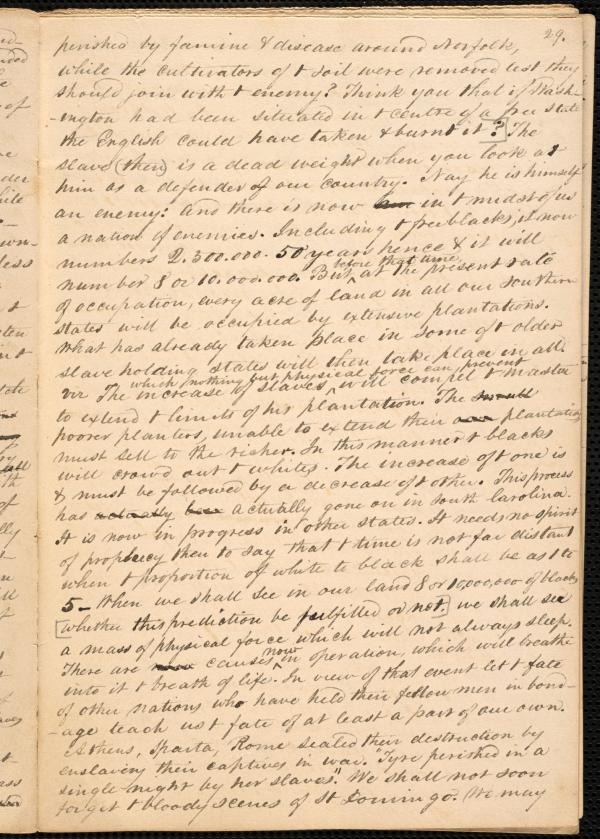 29.
perished by famine & disease around Norfolk,
while the cultivators of t soil were removed lest they
should join with t enemy? Think you that if Wash-
-ington had been situated in t centre of a free state
the English could have taken & burnt it? The
slave (then) is a dead weight when you look at
him as a defender of our country. Nay he is himself
an enemy: and there is now in t midst of us
a nation of enemies. Including t free blacks, it now
numbers 2.300.000. 50 years hence & it will
before that time,
number 8 or 10.000.000. But, ^ at the present rate
of occupation, every acre of land in all our Southern
states will be occupied by extensive plantations.
What has already taken place in some of t older
slave holding states will then take place in all
which, nothing but physical force can prevent
viz The increase of slaves ^ will compel t master
to extend t limits of his plantation. The small
poorer planters, unable to extend their own plantations
must sell to the richer. In this manner t blacks
will crowd out t whites. The increase of t one is
& must be followed by a decrease of t other. This process
has actually been actually gone on in South Carolina.
It is now in progress in other states. It needs no spirit
of prophecy then to say that t time is not far distant
when t proportion of white to black shall be as 1 to
5 — When we shall see in our land 8 or 10,000,000 of blacks
[whether this prediction be fulfilled or not,] we shall see
a mass of physical force which will not always sleep.
now
There are now causes ^ in operation, which will breathe
into it t breath of life. In view of that event let t fate
of other nations who have held their fellow men in bond-
-age teach us t fate of at least a part of our own.
Athens, Sparta, Rome sealed their destruction by
enslaving their captives in war. "Tyre perished in a
single night by her slaves". We shall not soon
forget t bloody scenes of St Domingo. (We may